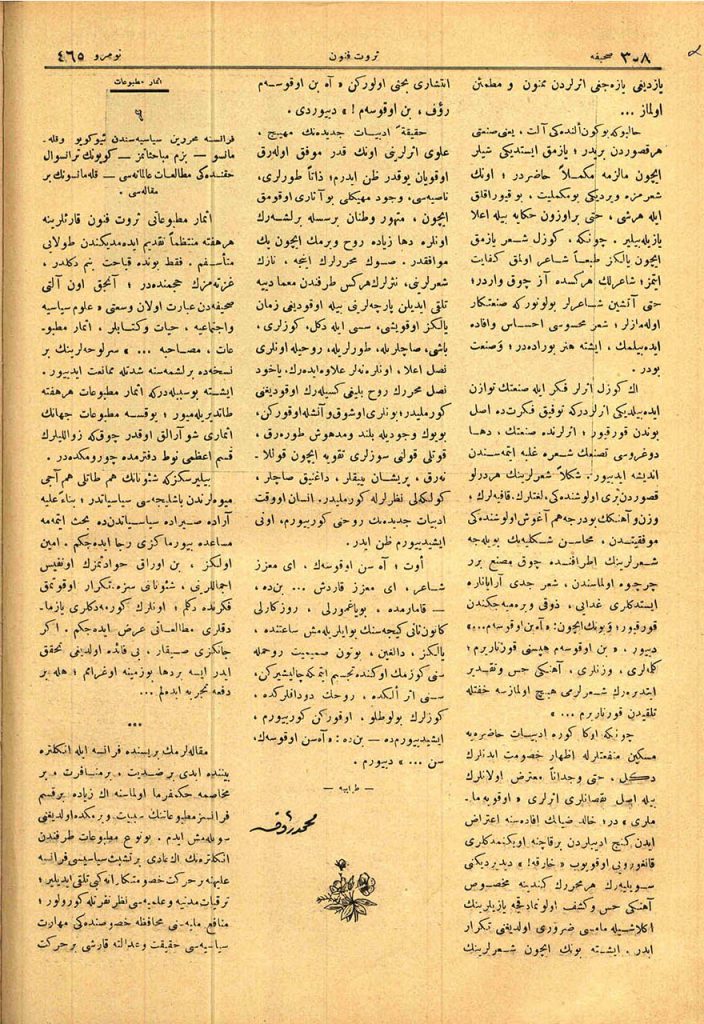 صحیفه ٣٠٨
ثروت فنون
نومرو ٤٦٥
یازدیغی یازه‌جغی اثرلردن ممنون و مطمئن
اولماز ...
حالبوكه بوكون ألنده‌كی آلت ، یعنی صنعتی
هر قصوردن بریدر ؛ یازمق ایستدیكی شیلر
ایچون مالزمه مكملاً حاضردر ؛ اونك
شعرمزه ویردیكی بومكملیت ، بوقیوراقلق
ایله هرشی ، حتی بر اوزون حكایه بیله اعلا
یازیله‌بیلیر . چونكه ، كوزل شعر یازمق
ایچون یالكز طبعاً شاعر اولمق كفایت
ایتمز ؛ شاعرلك هركسده آز چوق واردر ؛
حتی آتشین شاعرلر بولونوركه صنعتكار
اوله‌مازلر ؛ شعر محسوسی احساس وافاده
ایده‌بیلمك ، ایشته هنر بوراده‌در ؛ وصنعت
بودر .
اك كوزل اثرلر فكر ایله صنعتك توازن
ایده‌بیلدیكی اثرلردركه توفیق فكرت‌ده اصل
بوندن قورقیور ؛ اثرلرنده صنعتك ، دها
دوغروسی تصنعك شعره غلبه ایتمه‌سندن
اندیشه ایدییور . شكلاً شعرلرینك هر درلو
قصوردن بری اولوشنده‌كی ، لغتلرك ، قافیه‌لرك ؛
وزن وآهنكك بودرجه هم آغوش اولوشنده‌كی
موفقیتدن ، محاسن شكلیه‌نك بویله‌جه
شعرلرینك اطرافنده چوق مصنع برر
چرچوه اولماسندن ، شعر جدی آرایانلره
ایستدكلری غدایی ، ذوقی ویره‌میه‌جكندن
قورقیور ؛ وبونك ایچون : «آه بن اوقوسه‌م...»
دییور . « بن اوقوسه‌م هپسنی قورتاریرم ؛
كله‌لری ، وزنلری ، آهنكی حس وتقدیر
ایتدیره‌رك شعرلرمی هیچ اولمازسه خفتله
تلقیدن قورتاریرم ... »
چونكه اوكا كوره ادبیات حاضره‌یه
مسكین منفعتلرله اظهار خصومت ایدنلرك
دكل ، حتی وجداناً معترض اولانلرك
بیله اصل نقصانلری اثرلری « اوقویه‌ما-
ملری » در ؛ خالد ضیانك افاده‌سنه اعتراض
ایدن كنج ادیبلردن برقاچنه اویكنمه‌دكلری
قانفورویی اوقویوب « خارقه ! » دیدیردیكنی
سویلیه‌رك هر محررك كندینه مخصوص
آهنكی حس وكشف اولونمادقجه یازیلرینك
اكلاشیله‌مامسی ضروری اولدیغنی تكرار
ایدر . ایشته بونك ایچون شعرلرینك
انتشاری بحثی اولوركن « آه بن اوقوسه‌م
رؤف ، بن اوقوسه‌م ! » دییوردی .
حقیقةً ادبیات جدیده‌نك مهیج ،
علوی اثرلرینی اونك قدر موفق اوله‌رق
اوقویان یوقدر ظن ایدرم ؛ ذاتاً طورلری ،
ناصیه‌سی ، وجود مهیكلی بوآثاری اوقومق
ایچون ، متهور وطنان برسسله برلشه‌رك
اونلره دها زیاده روح ویرمك ایچون پك
موافقدر . صوك محررلرك اینجه ، نازك
شعرلرینی ، نثرلرك هركس طرفندن معما دییه
تلقی ایدیلن پارچه‌لرینی بیله اوقودیغی زمان
یالكز اوقویشی ، سسی ایله دكل ، كوزلری ،
باشی ، صاچلریله ، طورلریله ، روحیله اونلری
نصل اعلا ، اونلره نه‌لر علاوه ایده‌رك ، یاخود
نصل محررك روح بلیغی كسیله‌رك اوقودیغنی
كورملیدر ؛ بونلری اوشوق وآتشله اوقوركن ،
بویوك وجودیله بلند ومدهوش طوره‌رق ،
قوتلی قولنی سوزلری تقویه ایچون قوللا-
نه‌رق ، پریشان بییقلر ، داغنیق صاچلر ،
كولكه‌لی نظرلرله كورملیدر . انسان اووقت
ادبیات جدیده‌نك روحنی كورییورم ، اونی
ایشیدییورم ظن ایدر .
أوت ؛ آه سن اوقوسه‌ك ، ای معزز
شاعر ، ای معزز قارداش ... بن‌ده ،
— قامارمده ، بو یاغمورلی ، روزكارلی
كانون ثانی كیجه‌سنك بو ایلریله‌مش ساعتنده ،
یالكز ، دالغین ، بوتون صمیمیت روحمله
سنی كوزمك اوكنده تجسیم ایتمكه چالیشیركن ،
سنی اثر ألكده ، روحك دوداقلركده ،
كوزلرك بولوطلو ، اوقوركن كورییورم ،
ایشیدییورم‌ده — بن‌ده : «آه سن اوقوسه‌ك ،
سن ... » دییورم .
— طرابیه —
محمد رؤف
اثمار مطبوعات
٩
فرانسه محررین سیاسیه‌سندن تیوكویو وقله-
مانسو — بزم مباحثاتمز — كویونك ترانسوال
حقنده‌كی مطالعات عالمانه‌سی — قله‌مانسونك بر
مقاله‌سی .
اثمار مطبوعاتی ثروت فنون قارئلرینه
هر هفته منتظماً تقدیم ایده‌مدیكندن طولایی
متأسفم . فقط بونده قباحت بنم دكلدر ،
غزته‌مزك حجمنده‌در ؛ آنجق اون آلتی
صحیفه‌دن عبارت اولان وسعتی « علوم سیاسیه
واجتماعیه ، حیات وكتابلر ، اثمار مطبو-
عات ، مصاحبه ... » سرلوحه‌لرینك بر
نسخه‌ده برلشمه‌سنه شدتله ممانعت ایدییور .
ایشته بوسببله‌دركه اثمار مطبوعات هر هفته
طاتدیریله‌میور ؛ یوقسه مطبوعات جهانك
اثماری شو آرالق اوقدر چوق‌كه زوالیلرك
قسم اعظمی نوط دفترمده چورومكده‌در .
بیلیرسكزكه شئونانك هم طاتلی هم آجی
میوه‌لرندن باشلیجه‌سی سیاسیاتدر ؛ بناءً علیه
آراده صیراده سیاسیاتدن‌ده بحث ایتمه‌مه
مساعده بیورماكزی رجا ایده‌جكم . امین
اولكز ، بن اوراق حوادثمزك اونفیس
اجماللرینی ، شئوناتی سزه تكرار اوقوتمق
فكرنده دكلم ؛ اونلرك كورمه‌دكلری یازما-
دقلری مطالعاتی عرض ایده‌جكم . اكر
جانكزی صیقار ، بی فائده اولدیغی تحقق
ایدر ایسه بردها بوزمینه اوغرامم ؛ هله بر
دفعه تجربه ایده‌لم ...
***
مقاله‌لرمك بریسنده فرانسه ایله انكلتره
بیننده ابدی بر ضدیت ، بر منافرت ، بر
مخاصمه حكمفرما اولماسنه اك زیاده برقسم
فرانسز مطبوعاتنك سببیت ویرمكده اولدیغنی
سویله‌مش ایدم . بونوع مطبوعات طرفندن
انكلتره‌نك ك عادی بر تشبث سیاسیسی فرانسه
علیهنه بر حركت خصومتكارانه كبی تلقی ایدیلیر ؛
ترقیات مدنیه وعلمیه‌سی نظر نفرتله كورولور ؛
منافع ملیه‌سنی محافظه خصوصنده‌كی مهارت
سیاسیه‌سی حقیقت وعدالته قارشی بر حركت